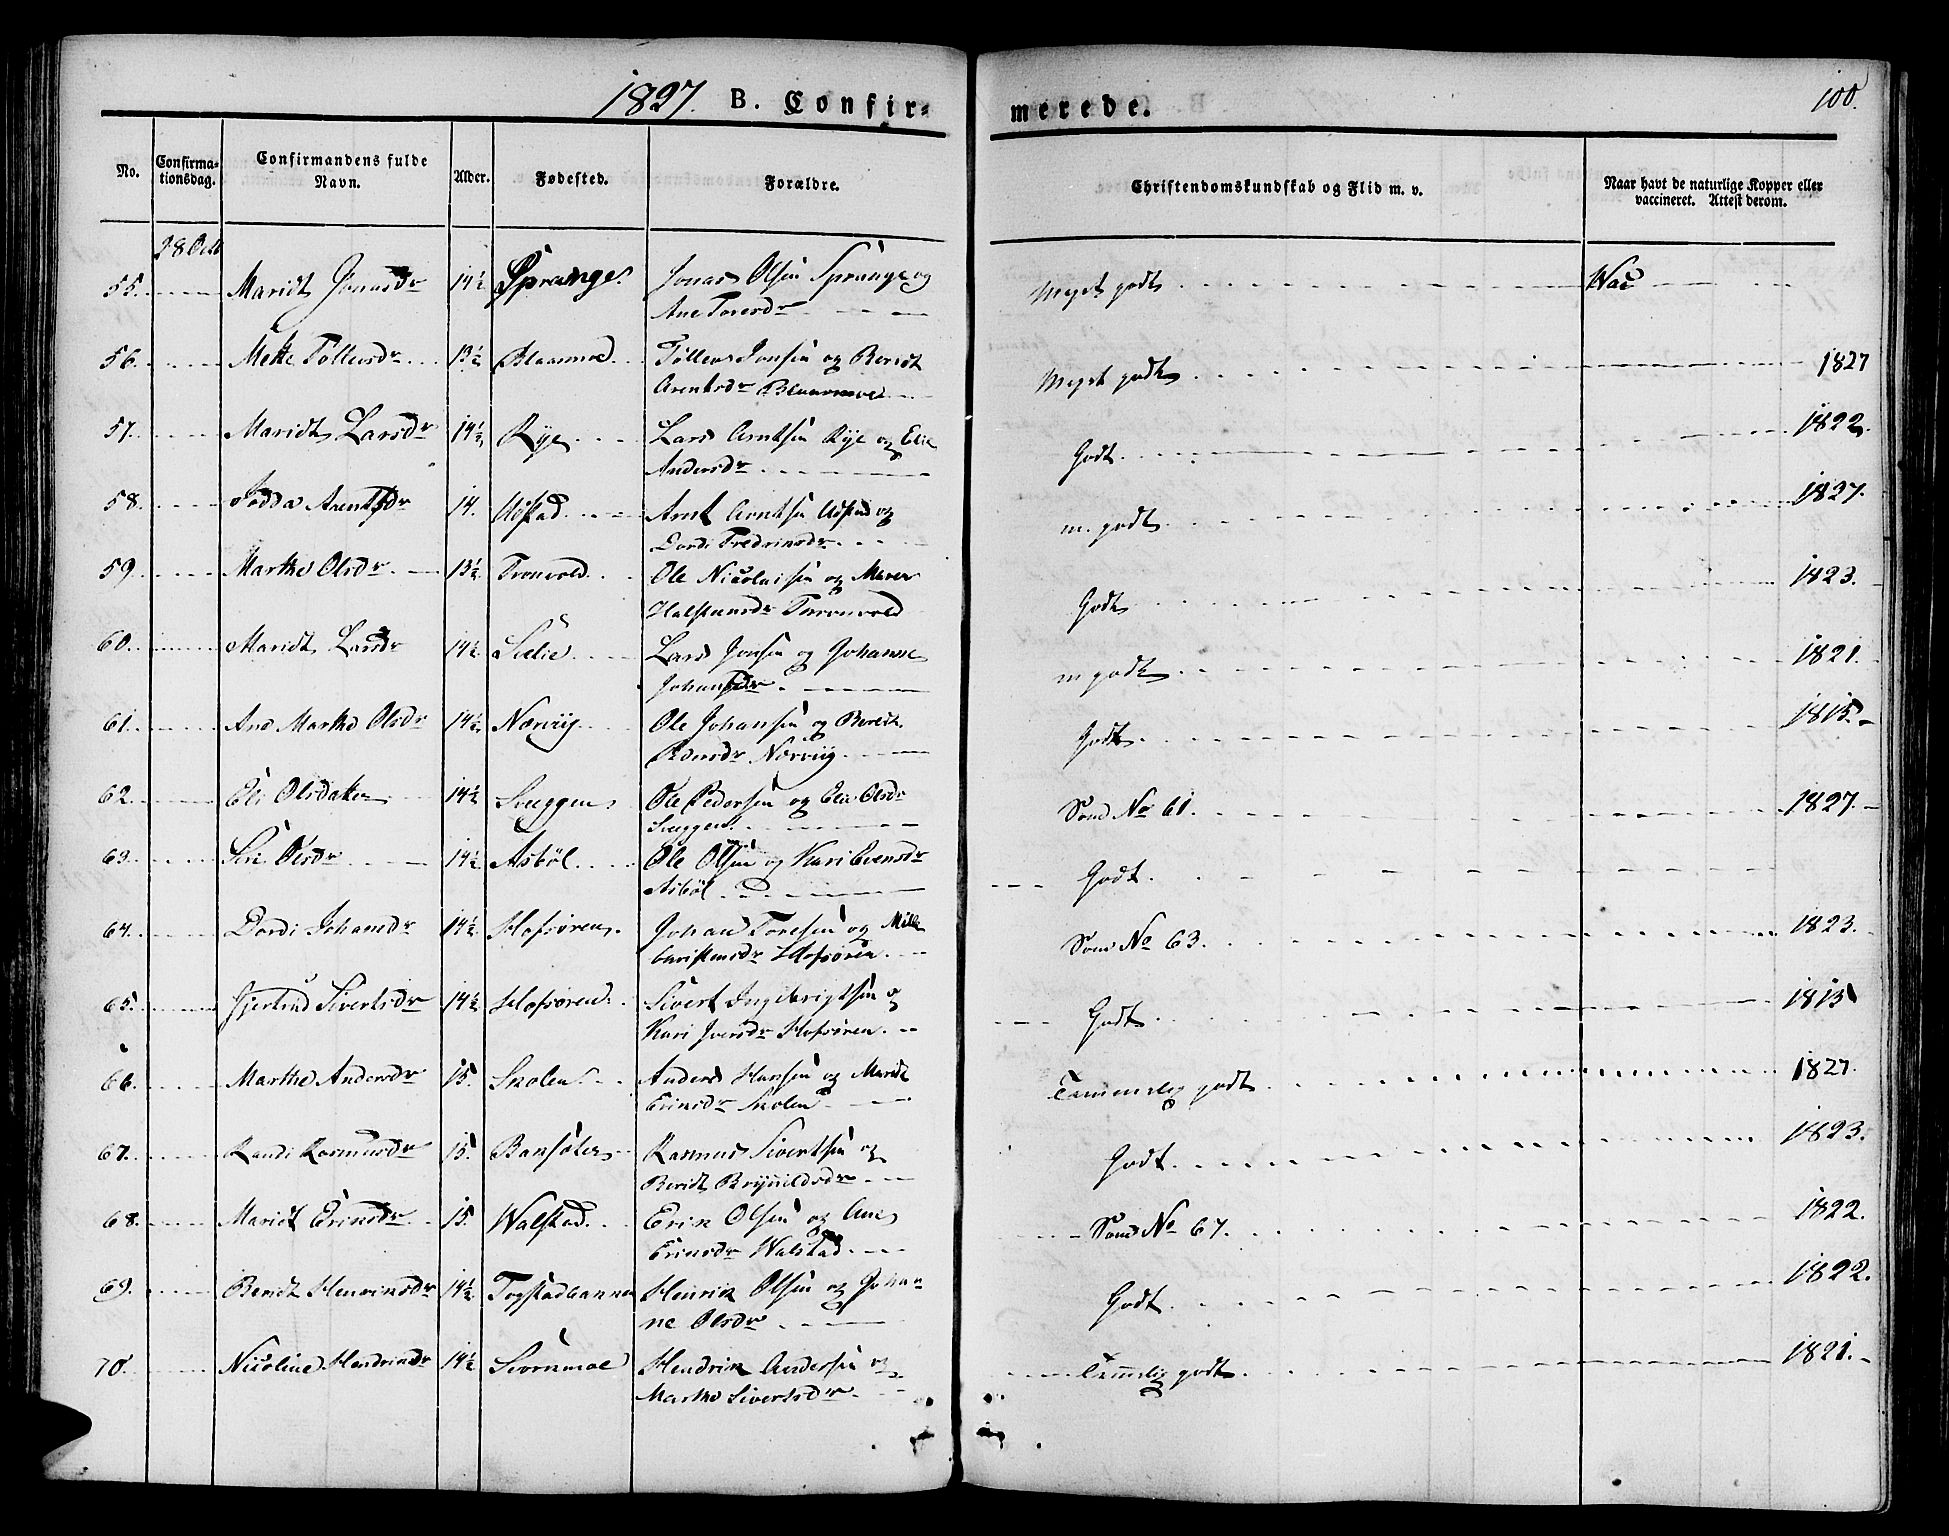 1827. B. Confir= merede. 100.
No. Confirma=tionsdag. Confirmandens fulde Navn. Alder. Fødested. Forældre. Christendomskundskab og Flid m. v. Naar havt de naturlige Kopper eller vaccineret. Attest derom.
28 Octb
55. Maridt Jonasdr 14½ Sprange. Jonas Olsen Sprange og Meget godt Vac
Ane Toresdr
56. Mette Tøllevsdr 13½ Blaamoe Tøllev Jonsen og Beridt Meget godt 1827
Arentsdr Blaamoe
57. Maridt Larsdr 14½ Rye Lars Arntsen Rye og Elie Godt 1822.
Andersdr
58. Arentsdr 14. Udstad Arnt Arntsen Udstad og m. godt 1827.
Dordi Fredriksdr
59. Marthe Olsdr 13½ Tronvold Ole Nicolaisen og Maren Godt 1823.
Halstensdr Tronvold
60. Maridt Larsdr 14½ Lars Jonsen og Johanne m godt 1821.
Johansdr
61. Ane Marthe Olsdr 14½ Nerviig Ole Johansen og Beridt Godt 1815.
Pedersdr Nerviig
62. Eli Olsdatter 14½ Snuggen Ole Pedersen og Elie Olsdr Som No 61. 1827.
Snuggen
63. Siri Olsdr 14½ Asbøl Ole Olsen og Kari Evensdr Godt.
Asbøl
64. Dordi Johansdr 14½ Hofsøren. Johan Toresen og Som No 63. 1823.
Christensdr Hofsøren
65. Gjertrud Sivertsdr 14½ Hofsøren. Sivert Ingebrigtsen og Godt 1815
Kari Iversdr Hofsøren
66. Marthe Andersdr 15. Skolen Anders Hansen og Maridt Temmelig godt 1827.
Eriksdr Skolen
67. Randi Rasmusdr 15. Rasmus Sivertsen og Godt 1823.
Beridt Brynildsdr
68. Maridt Eriksdr 15. Walstad Erik Olsen og Ane Som No 67. 1822.
Eriksdr Walstad
69. Beridt Henriksdr 14½ Togstadbannen Henrik Olsen og Johan- Godt 1822.
ne Olsdr
70. Nicoline Hendriksdr 14½ Hendrik Andersen og Temmelig godt 1821.
Marthe Sivertsdr